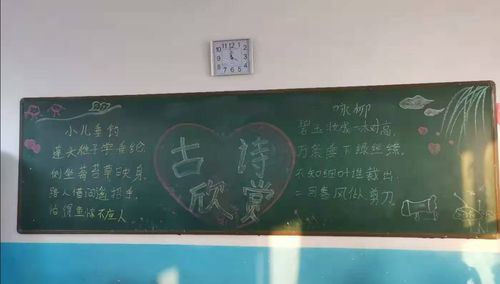 小儿垂钓
蓬头稚子学垂纶
侧坐莓苔草映身
路人借问遥招手，
怕得鱼惊不应人
古詩
欣赏
咏柳
碧玉妆成一树高，
万条垂下绿丝绦，
不知细叶谁裁出，
二月春风似剪刀